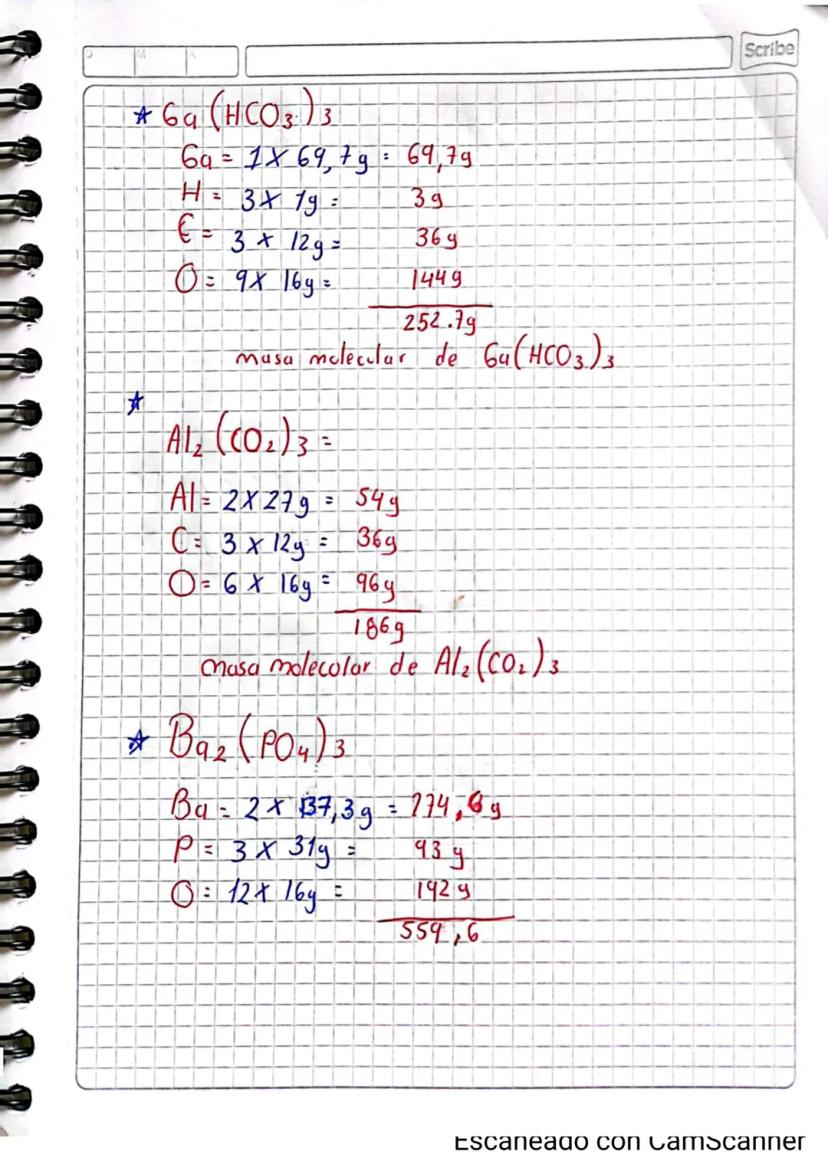 D M A
Scribe
☆ Ga(HCO₃)₃
Ga = 1 x 69,7g = 69,7g
H = 3 x 1g = 3g
C = 3 x 12g = 36g
O = 9 x 16g = 144g
252.7g
masa molecular de Ga(HCO₃)₃
☆
Al₂(CO₂)₃ =
Al = 2 x 27g = 54g
C = 3 x 12g = 36g
O = 6 x 16g = 96g
186g
masa molecolar de Al₂(CO₂)₃
☆ Ba₂(PO₄)₃
Ba = 2 x 137,3g = 274,6g
P = 3 x 31g = 93g
O = 12 x 16g = 192g
559,6
Escaneado con CamScanner